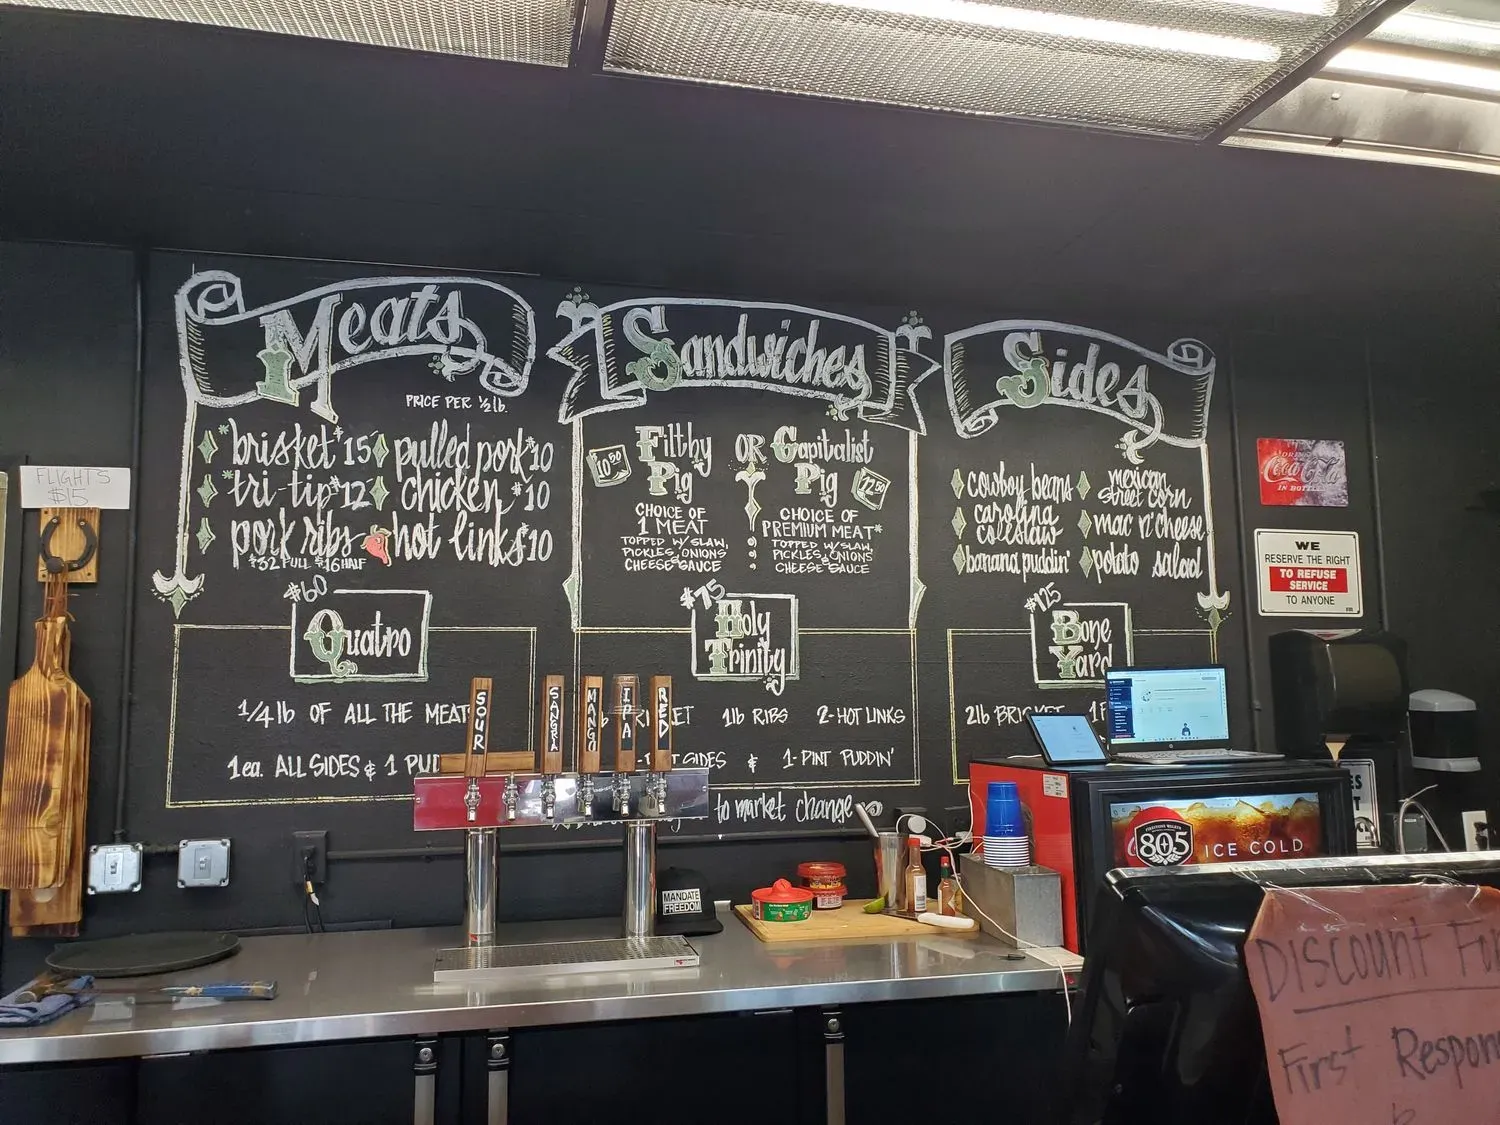 Meats
PRICE PER 1/2 lb.
*brisket $15
pulled pork $10
*tri-tip $12
chicken $10
pork ribs
$32 FULL $16 HALF
hot links $10
Sandwiches
Filthy
Pig
10.50
OR
Capitalist
Pig
12.50
CHOICE OF
1 MEAT
TOPPED W/ SLAW,
PICKLES, ONIONS
CHEESE SAUCE
CHOICE OF
PREMIUM MEAT*
TOPPED W/ SLAW
PICKLES & ONIONS
CHEESE SAUCE
Sides
cowboy beans
mexican
street corn
carolina
coleslaw
mac n' cheese
banana puddin'
potato salad
$60
Quatro
1/4 lb OF ALL THE MEAT
1ea. ALL SIDES & 1 PUD
$75
Holy
Trinity
1lb RIBS
2-HOT LINKS
SIDES & 1-PINT PUDDIN'
$125
Bone
Yard
2lb BRISKET
to market change
FLIGHTS
$15
SOUR
SANGRIA
MANGO
IPA
RED
MANDATE
FREEDOM
DRINK
Coca-Cola
IN BOTTLES
WE
RESERVE THE RIGHT
TO REFUSE
SERVICE
TO ANYONE
805
ICE COLD
DISCOUNT FO
First Respon